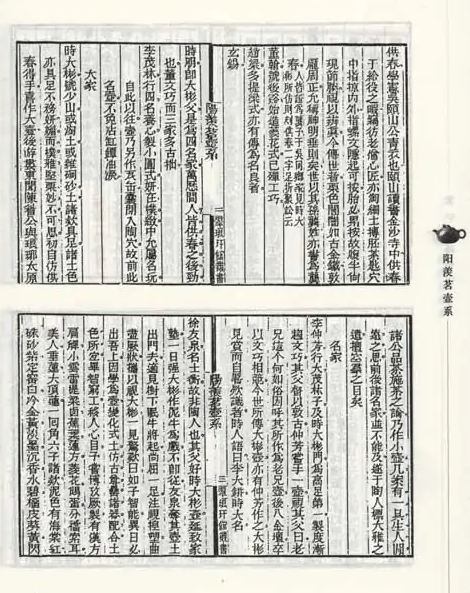 供春學憲吳頤山公青衣也頤山讀書金沙寺中供春
于給役之暇竊仿老僧心匠亦淘細土摶胚茶匙穴
中指掠內外指螺文隱起可按胎必累按故腹半尚
現節腠視以辨真今傳世者栗色闇闇如古金鐵敦
龐周正允稱神明垂則矣世以其孫龔姓亦書為龔
春人皆證為龔予于吳冏卿家見時大
彬所仿則刻供春二字足折聚訟云
董翰號後谿始造菱花式已殫工巧
趙梁多提梁式亦有傳為名良者
玄錫
陽羨茗壺系 二 翠琅玕館叢書
時朋即大彬父是為四名家萬曆間人皆供春之後勁
也董文巧而三家多古拙
李茂林行四名養心製小圓式妍在樸緻中允屬名玩
自此以往壺乃另作瓦缶囊閉入陶穴故前此
名壺不免沾缸罈油淚
大家
時大彬號少山或淘土或雜碙砂土諸款具足諸土色
亦具足不務妍媚而樸雅堅栗妙不可思初自仿供
春得手喜作大壺後遊婁東聞陳眉公與琅琊太原
諸公品茶施茶之論乃作小壺几案有一具生人閒
遠之思前後諸名家並不能及遂于陶人標大雅之
遺擅空羣之目矣
名家
李仲芳行大茂林子及時大彬門為高足第一製度漸
趨文巧其父督以敦古仲芳嘗手一壺視其父曰老
兄這個何如俗因呼其所作為老兄壺後入金壇卒
以文巧相競今世所傳大彬壺亦有仲芳作之大彬
見賞而自署款識者時人語曰李大缾時大名
陽羨茗壺系 三 翠琅玕館叢書
徐友泉名士衡故非陶人也其父好時大彬壺延致家
塾一日强大彬作泥牛為戲不即從友泉奪其壺土
出門去適見樹下眠牛將起尚屈一足注視捏塑曲
盡厥狀攜以視大彬一見驚歎曰如子智能異日必
出吾上因學為壺變化式土仿古尊罍諸器配合土
色所宜畢智窮工移人心目予嘗博攷厥製有漢方
扁觶小雲雷提梁卣蕉葉蓮方菱花鵝蛋分襠索耳
美人垂蓮大頂蓮一回角六子諸款泥色有海棠紅
硃砂紫定窰白冷金黃淡墨沉香水碧榴皮葵黃閃
阳羡茗壶系